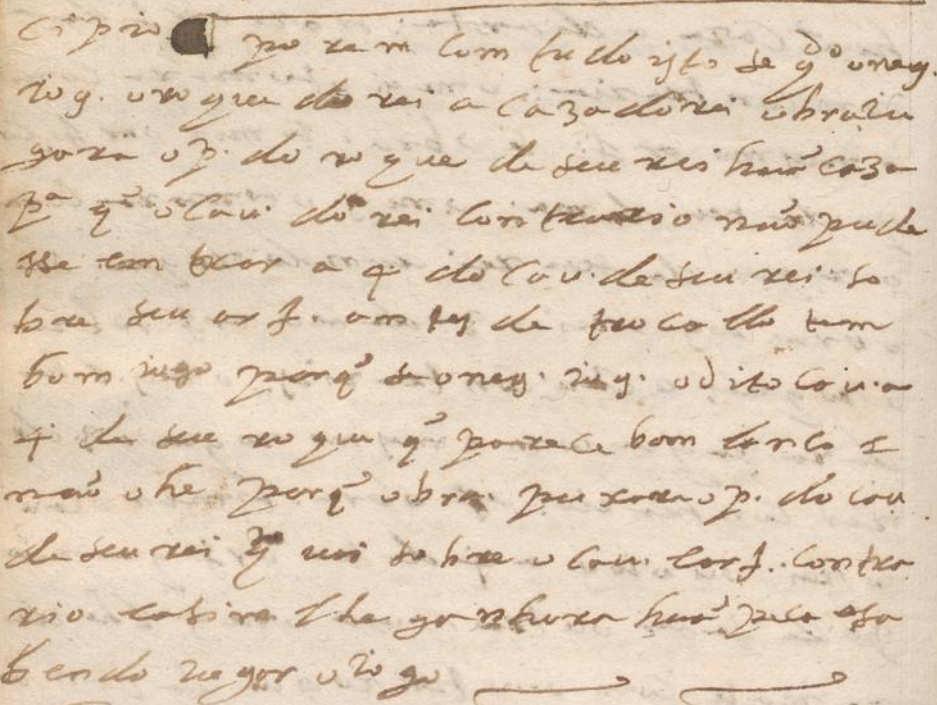 cipio porem com tudo isto se q^do o neg.
iog. o roque do rei a caza do rei o bra iu
gara o p. do roque de seu rei huã caza
p^a q̃ o cau. do rei contrario não pude
sse entrar a 4 do cau. de seu rei so
bre seu arf. antes de trocallo tem
bom iogo porq̃ se o neg. iug. o dito cau. a
4 de seu roque q̃ parece bom lanco e
não o he porq̃ o bra. puxara o p. do cau.
de seu rei q̃ uai sobre o cau. e arf. contra
rio e asim lhe ganhara huã peca sa
bendo iugar o iogo